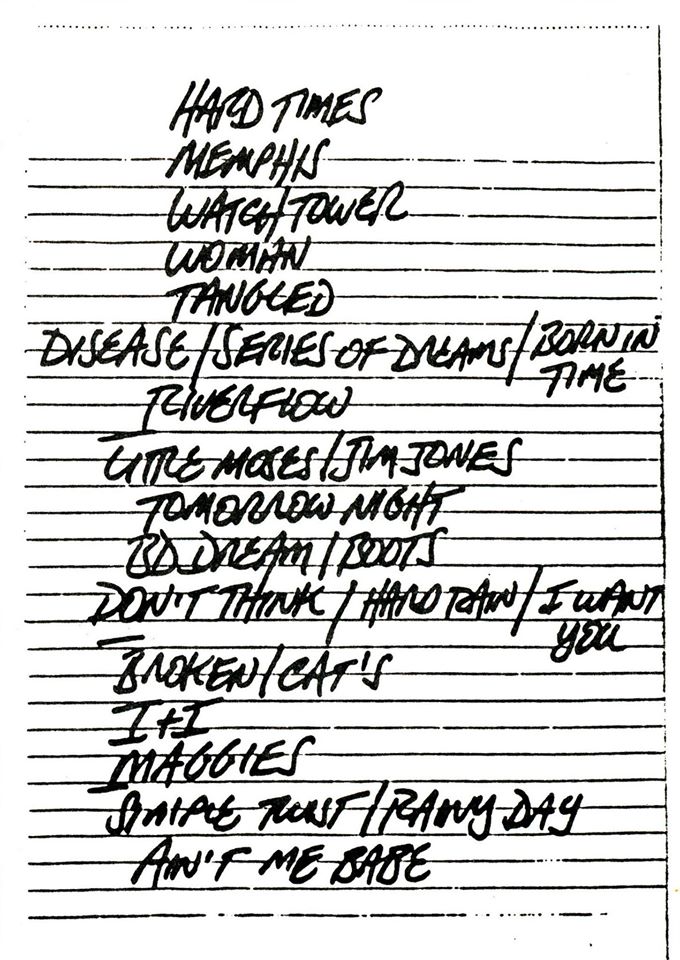 HARD TIMES
MEMPHIS
WATCH/TOWER
WOMAN
TANGLED
DISEASE/SERIES OF DREAMS/BORN IN
TIME
RIVERFLOW
LITTLE MOSES/JIM JONES
TOMORROW NIGHT
BD DREAM/BOOTS
DON'T THINK/HARD RAIN/I WANT
YOU
BROKEN/CAT'S
I+I
MAGGIES
SIMPLE TWIST/RAINY DAY
AIN'T ME BABE